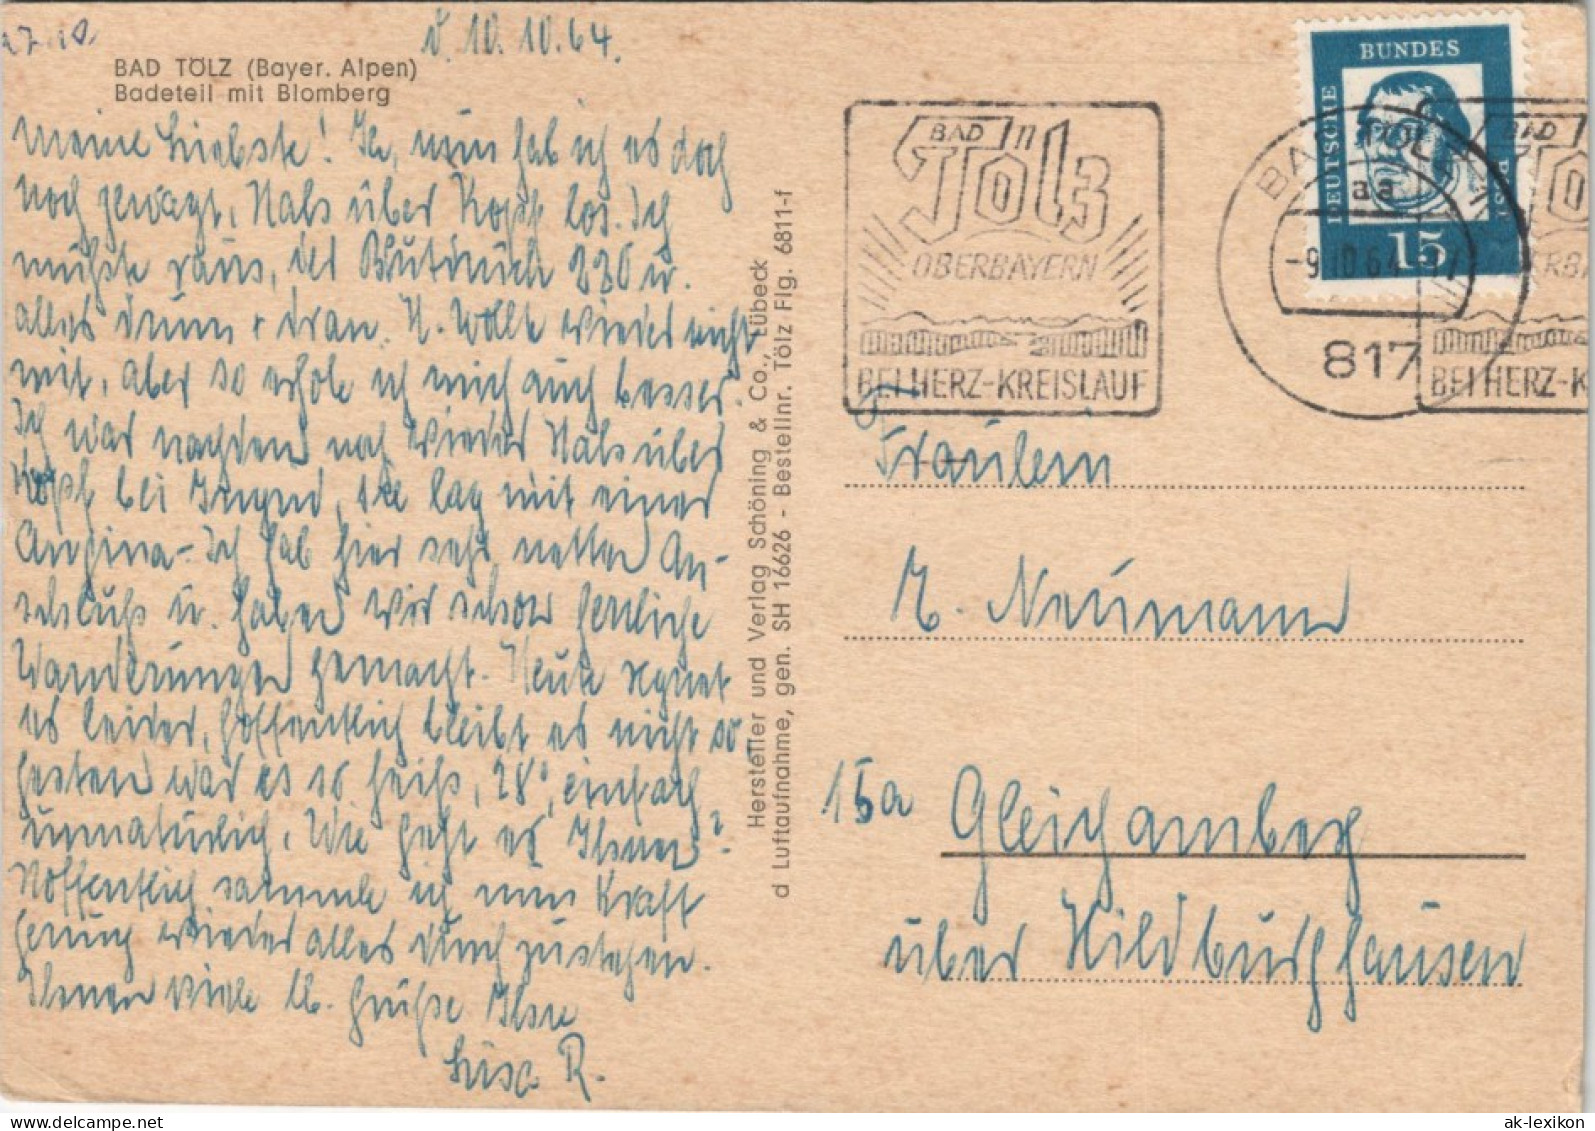 27.10.
d. 10.10.64.
BAD TÖLZ (Bayer. Alpen)
Badeteil mit Blomberg
Meine Liebste! Ja, nun hab ich es doch
noch gewagt, Hals über Kopf los. Ich
mußte raus, der Blutdruck 230 u.
alles drum + dran. H. wollte wieder nicht
mit, aber so erhole ich mich auch besser.
Ich war nachdem noch wieder Hals über
Kopf bei Ingrid, sie lag mit einer
Angina – Ich hab hier sehr netten An-
schluß u. haben wir schon herrliche
Wanderungen gemacht. Heute regnet
es leider, hoffentlich bleibt es nicht so
gestern war es so heiß, 28°, einfach
unnatürlich. Wie geht es Ihnen?
Hoffentlich sammle ich nun Kraft
genug wieder alles durchzustehen.
Ihnen viele lb. Grüße Ihre
Lisa R.
Hersteller und Verlag Schöning & Co., Lübeck
d Luftaufnahme, gen. SH 16626 - Bestellnr. Tölz Flg. 6811-f
BAD
Tölz
OBERBAYERN
BEI HERZ-KREISLAUF
BAD TÖLZ 1
aa
-9.10.64-17
817
DEUTSCHE
BUNDES
POST
15
BAD
Tö
ERBA
BEI HERZ-K
Fräulein
E. Neumann
15a Gleichamberg
über Hildburghausen
ak-lexikon.com